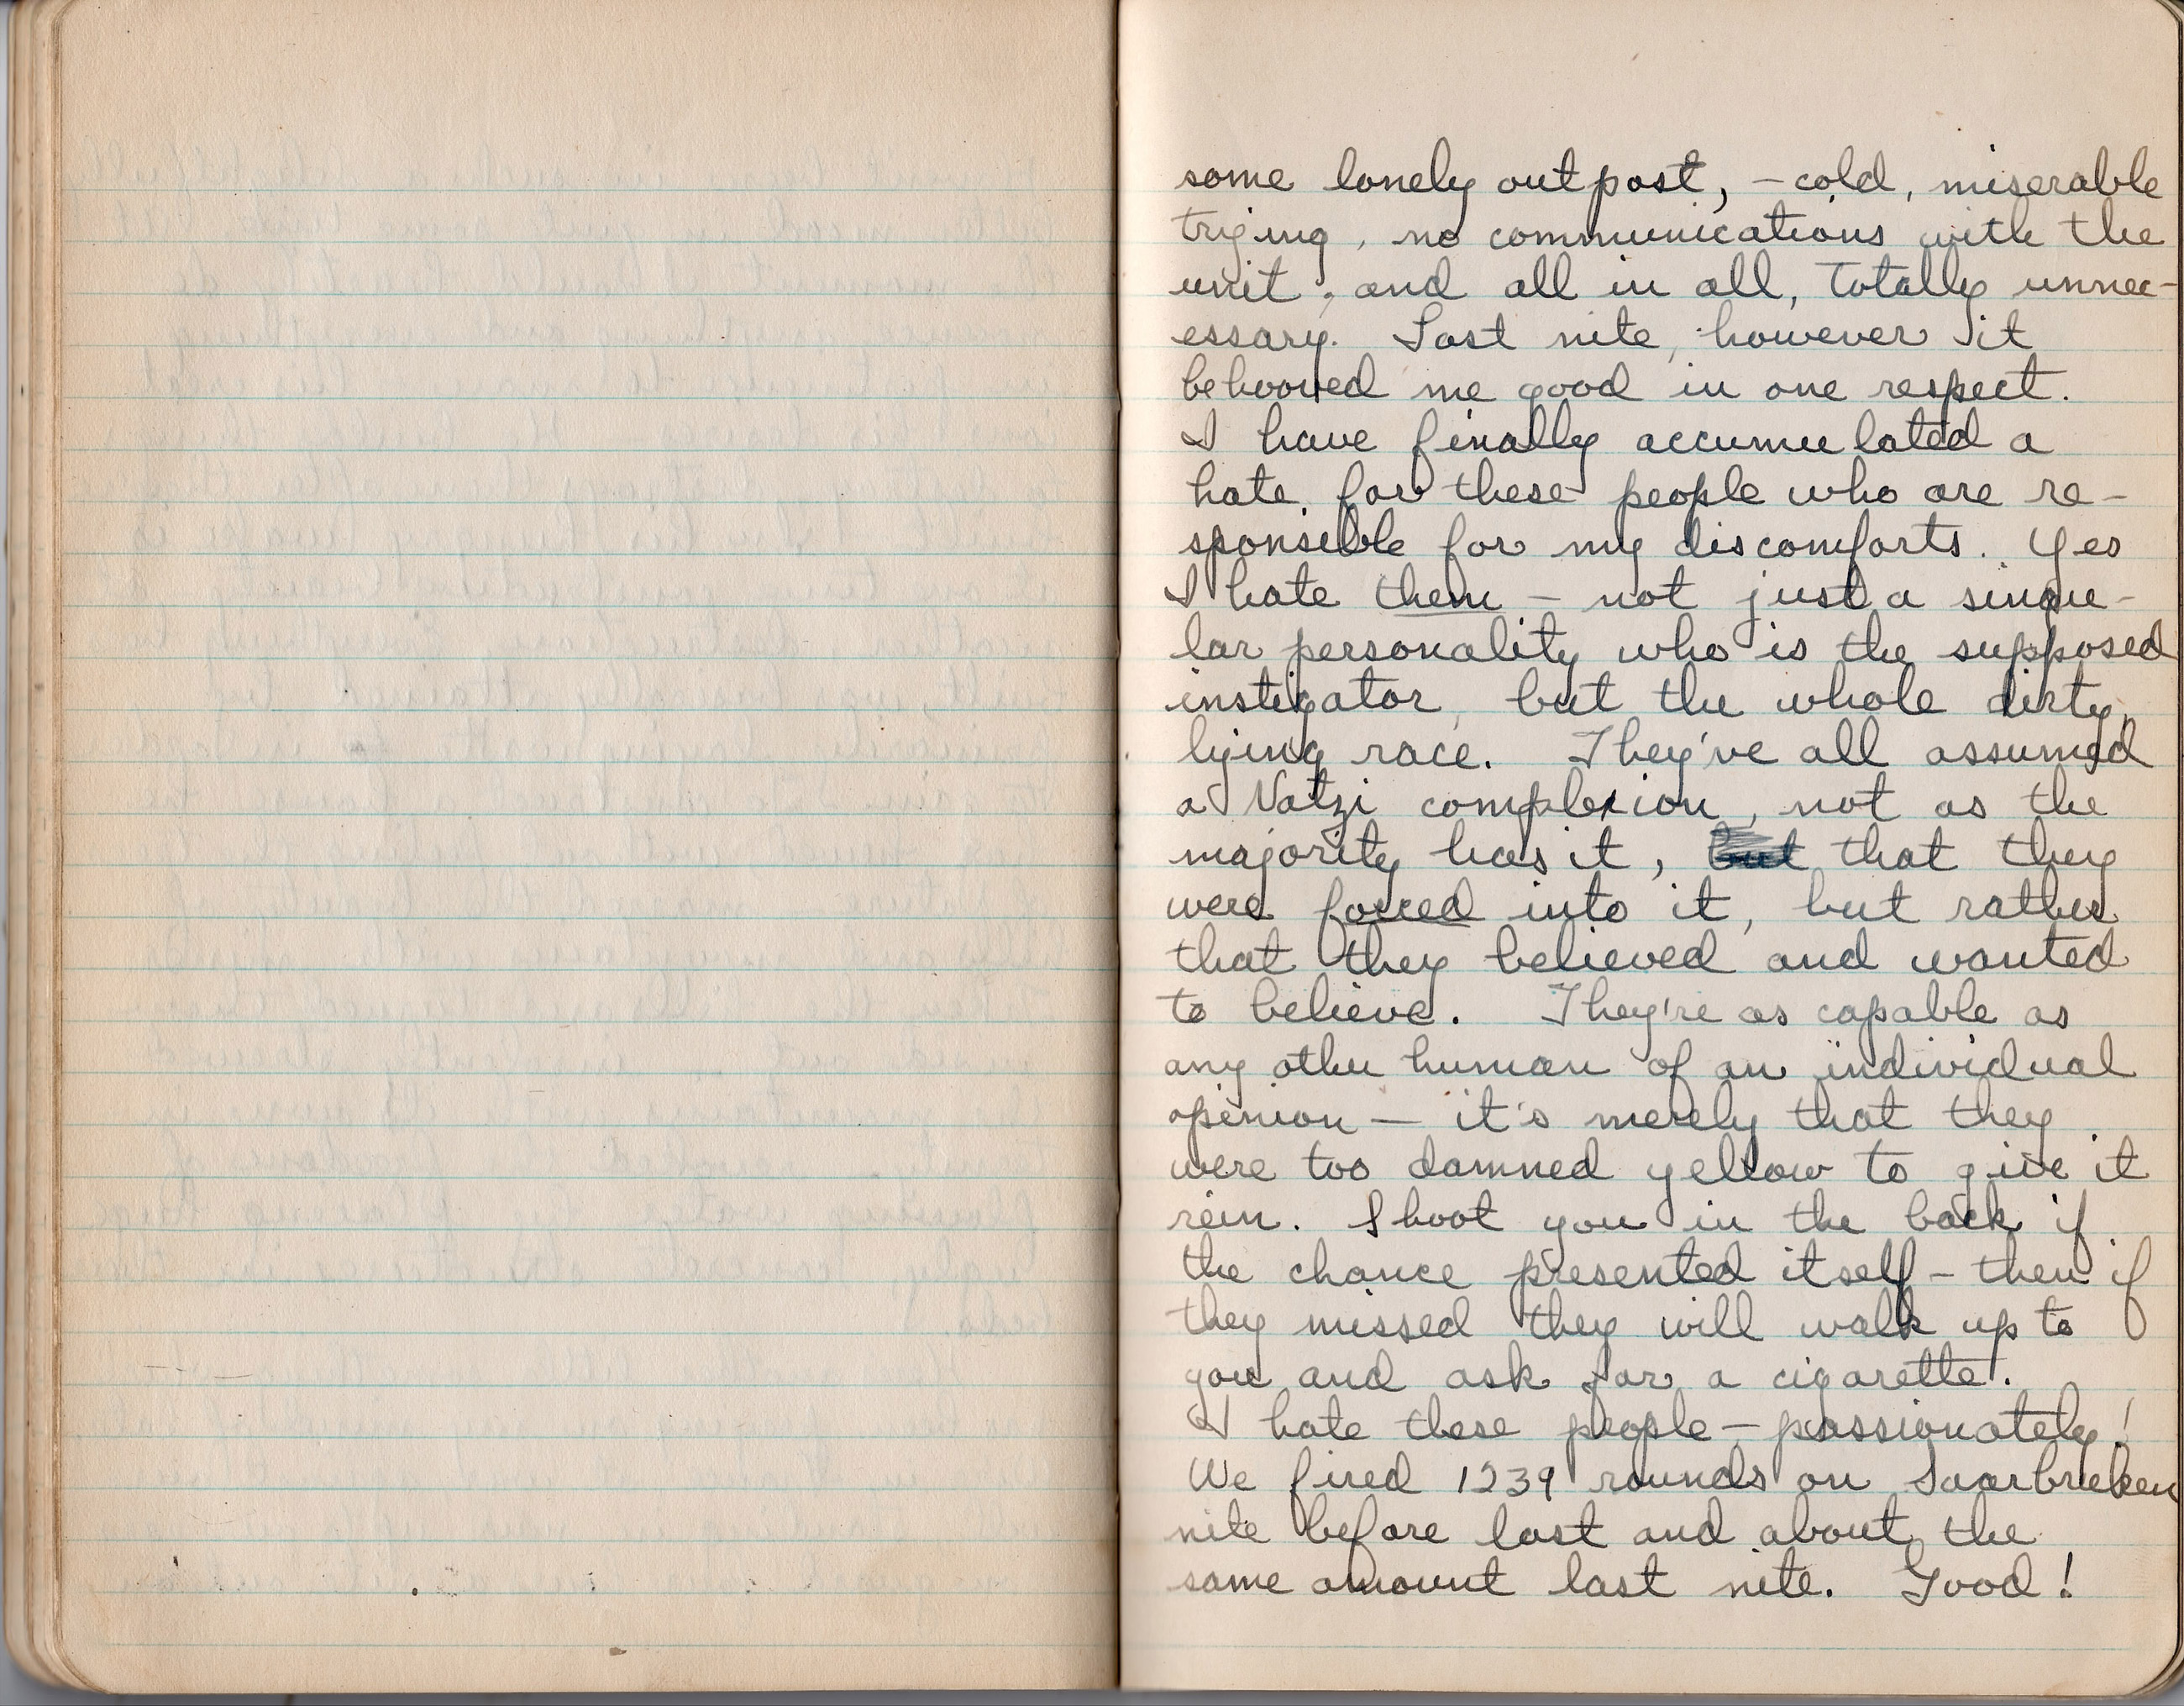 some lonely outpost, - cold, miserable
trying, no communications with the
unit, and all in all, totally unnec-
essary. Last nite, however it
behooved me good in one respect.
I have finally accumulated a
hate for these people who are re-
sponsible for my discomforts. Yes
I hate them - not just a singu-
lar personality who is the supposed
instigator, but the whole dirty,
lying race. They've all assumed
a Natzi complexion, not as the
majority has it, but that they
were forced into it, but rather
that they believed and wanted
to believe. They're as capable as
any other human of an individual
opinion — it's merely that they
were too damned yellow to give it
rein. Shoot you in the back if
the chance presented itself - then if
they missed they will walk up to
you and ask for a cigarette.
I hate these people - passionately!
We fired 1239 rounds on Saarbruken
nite before last and about the
same amount last nite. Good!